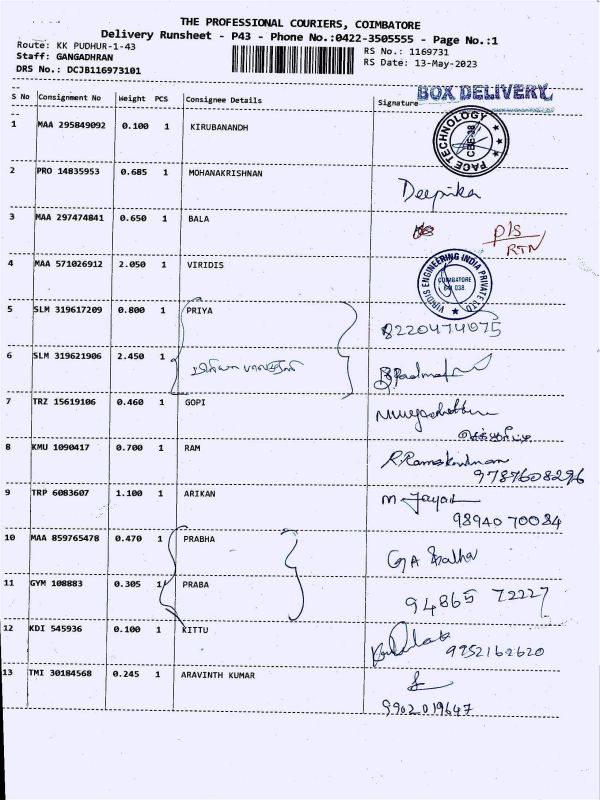 THE PROFESSIONAL COURIERS, COIMBATORE
Delivery Runsheet - P43 - Phone No.:0422-3505555 - Page No.:1
Route: KK PUDHUR-1-43
RS No.: 1169731
Staff: GANGADHRAN
RS Date: 13-May-2023
DRS No.: DCJB116973101
BOX DELIVERY
S No Consignment No Weight PCS Consignee Details Signature
1 MAA 295849092 0.100 1 KIRUBANANDH
PACE TECHNOLOGY CBE-38
2 PRO 14835953 0.685 1 MOHANAKRISHNAN
Deepika
3 MAA 297474841 0.650 1 BALA
P/S
RTN
4 MAA 571026912 2.050 1 VIRIDIS
VIRIDIS ENGINEERING INDIA PRIVATE LTD COIMBATORE 641 038.
5 SLM 319617209 0.800 1 PRIYA
8220474075
6 SLM 319621906 2.450 1
7 TRZ 15619106 0.460 1 GOPI
8 KMU 1090417 0.700 1 RAM
R.Ramakrishnan
9787608296
9 TRP 6083607 1.100 1 ARIKAN
M. Jayal
9894070084
10 MAA 859765478 0.470 1 PRABHA
11 GYM 108883 0.305 1 PRABA
94865 72227
12 KDI 545936 0.100 1 KITTU
9952162620
13 TMI 30184568 0.245 1 ARAVINTH KUMAR
9902019647